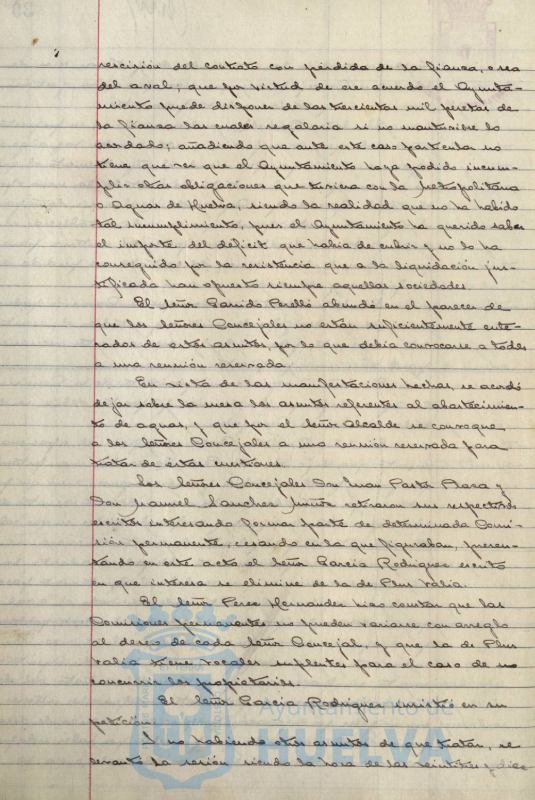 rescisión del contrato con pérdida de la fianza, o sea
del aval; que por virtud de ese acuerdo el Ayunta-
miento puede disponer de las trescientas mil pesetas de
la fianza las cuales regalaria si no mantuviere lo
acordado; añadiendo que ante este caso particular no
tiene que ver que el Ayuntamiento haya podido incum-
plir otras obligaciones que tuviera con la Metropolitana
o Aguas de Huelva, siendo la realidad que no ha habido
tal incumplimiento, pues el Ayuntamiento ha querido saber
el importe del déficit que habia de cubrir y no lo ha
conseguido por la resistencia que a la liquidación jus-
tificada han opuesto siempre aquellas sociedades.
El Señor Garrido Perelló abundó en el parecer de
que los Señores Concejales no están suficientemente ente-
rados de estos asuntos, por lo que debia convocarse a todos
a una reunión reservada.
En vista de las manifestaciones hechas, se acordó
dejar sobre la mesa los asuntos referentes al abastecimien-
to de aguas, y que por el Señor Alcalde se convoque
a los Señores Concejales a una reunión reservada para
tratar de éstas cuestiones.
Los Señores Concejales Don Juan Pastor y
Don Manuel Sanchez retiraron sus respectivos
escritos interesando formar parte de determinada Comi-
sión permanente, cesando en la que figuraban, presen-
tando en este acto el Señor Garcia Rodriguez escrito
en que interesa se elimine de la de Plus Valia.
El Señor Perez Hernandez hizo constar que las
Comisiones permanentes no pueden variarse con arreglo
al deseo de cada Señor Concejal, y que la de Plus
Valia tiene vocales suplentes para el caso de no
concurrir los propietarios.
El Señor Garcia Rodriguez insistió en su
petición.
Y no habiendo otros asuntos de que tratar, se
levantó la sesión siendo la hora de las veintitres y diez
Ayuntamiento de
HUELVA